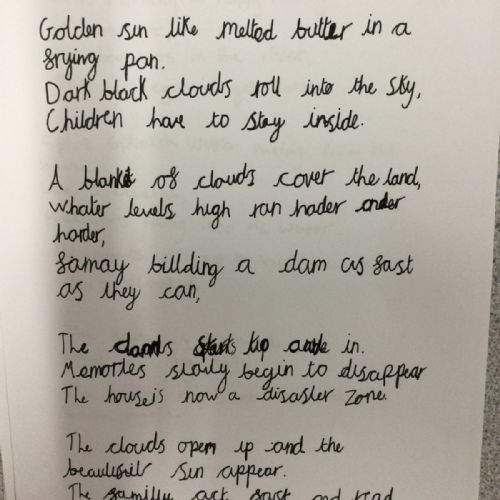 Golden sun like melted butter in a
frying pan.
Dark black clouds roll into the sky,
Children have to stay inside.
A blanket of clouds cover the land,
whater levels high ran hader and
harder,
famay billding a dam as fast
as they can,
The starts in.
Memories slowly begin to disappear
The house is now a disaster zone.
The clouds open up and the
sun appear.
The familly and